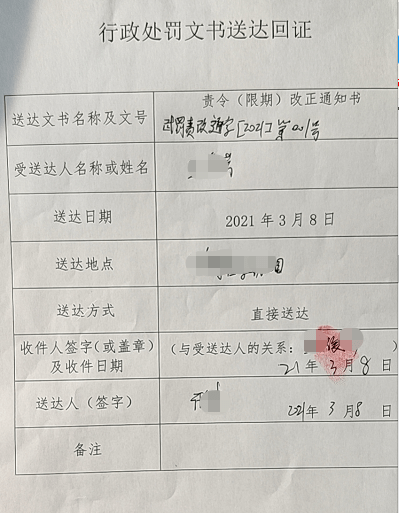 行政处罚文书送达回证
送达文书名称及文号
责令（限期）改正通知书
罚责改通字[2021]第001号
受送达人名称或姓名
号
送达日期
2021年3月8日
送达地点
园
送达方式
直接送达
收件人签字（或盖章）
及收件日期
（与受送达人的关系： ）
21年3月8日
送达人（签字）
2021年3月8日
备注